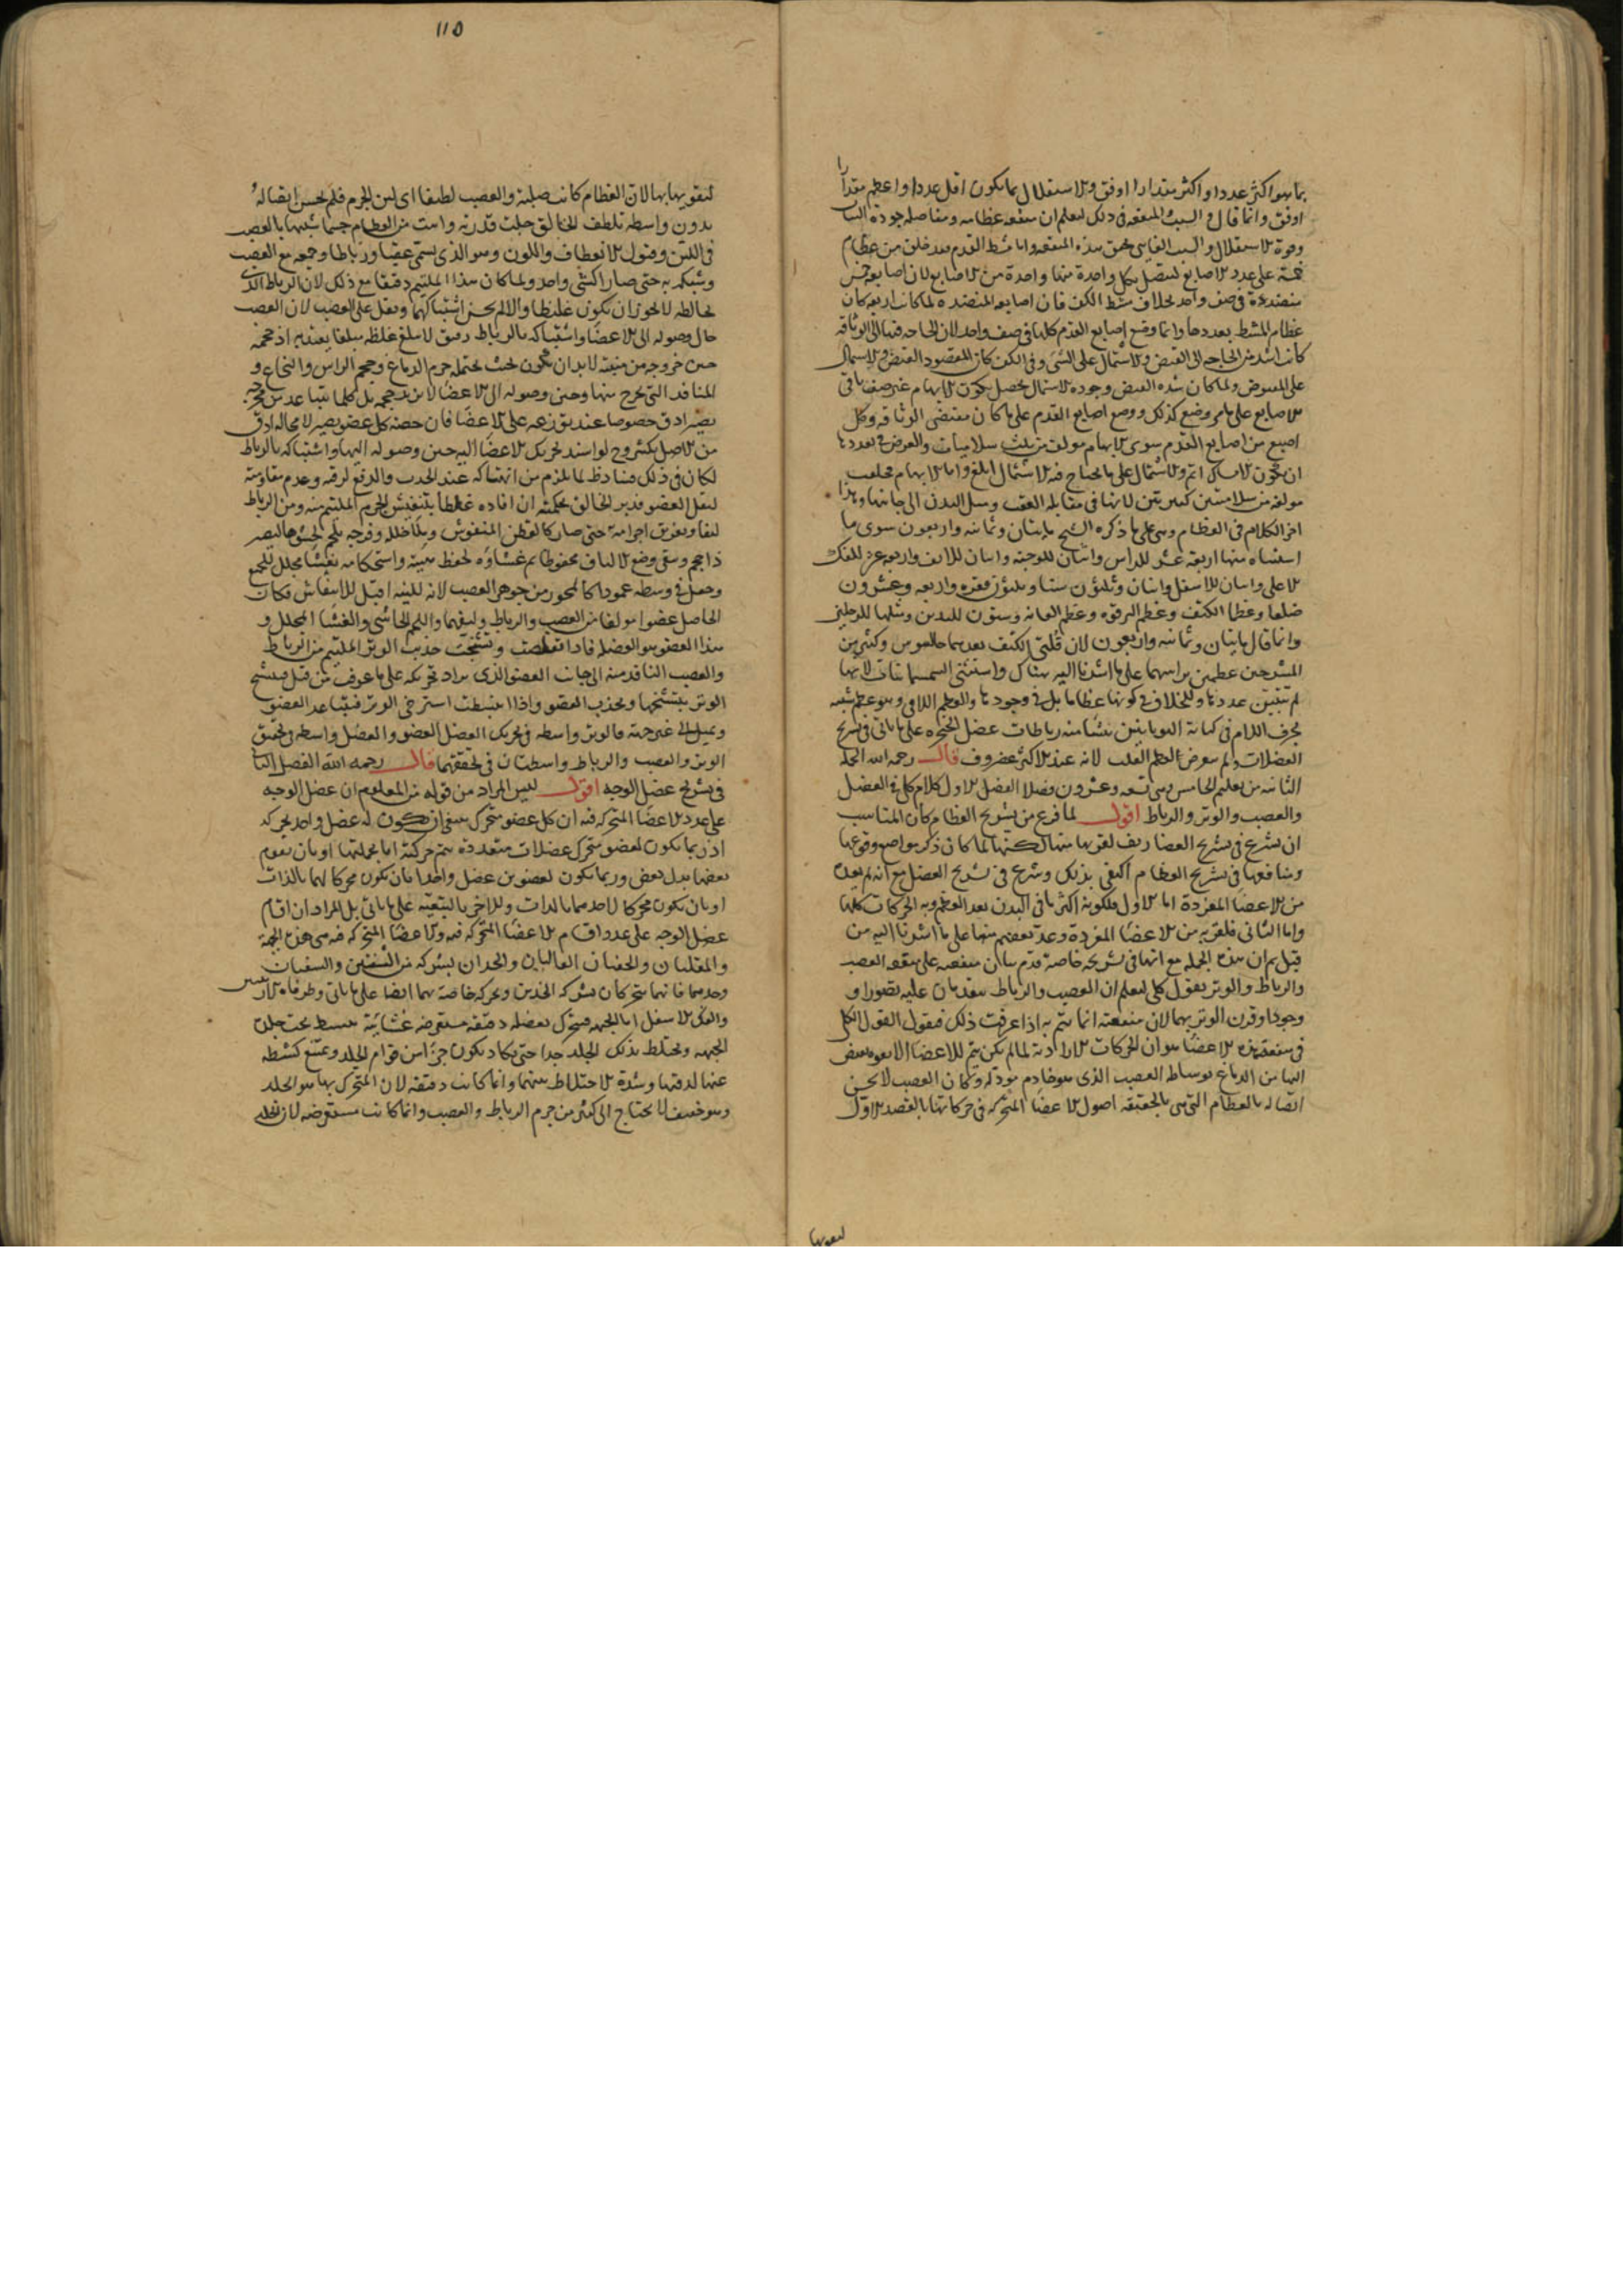 بما هو اكثر عددا واكثر مقدارا اوفق والاستقلال بما يكون اقل عددا واعظم مقدارا
اوفق وانما قال في السبب المنفعة في ذلك لتعلم ان منفعة عظامه ومفاصله جودة الثبات
وقوة الاستقلال والسبب الفاسي محقق هذه المنفعة واما مشط القدم فقد خلق من عظام
خمسة على عدد الاصابع ليتصل بكل واحدة منها واحدة من الاصابع لان اصابعه خمس
منضدة في صف واحد بخلاف مشط الكف فان اصابعه المنضدة لما كانت اربعة كان
عظام المشط بعددها وانما وضع اصابع القدم كلها في صف واحد لان الحاجة فيها الى الوثاقة
كانت اشد من الحاجة الى القبض والاشتمال على الشئ وفي الكف كان المقصود القبض والاشتمال
على المقبوض ولما كان شدة القبض وجودة الاشتمال يحصل بكون الابهام غير صف باقي
الاصابع على ما مر وضع كذلك ووضع اصابع القدم على ما كان مقتضى الوثاقة وكل
اصبع من اصابع القدم سوى الابهام مولف من ثلث سلاميات والغرض في تعددها
ان يكون الامساك اتم والاشتمال على ما يحتاج فيه الاشتمال ابلغ واما الابهام
مولفة من سلاميتين كبيرتين لانها في مقابلة العقب وميل البدن الى جانبها وهذا
اخر الكلام في العظام وهي على ما ذكره الشيخ مايتان وثمانية واربعون سوى ما
استثناه منها اربعة عشر للراس واثنان للوجنة واثنان للانف واربعة عشر للفك
الاعلى واثنان للاسفل واثنان وثلثون سنا وثلثون فقرة واربعة وعشرون
ضلعا وعظما الكتف وعظم الترقوة وعظم العانة وستون لليدين ومثلها للرجلين
وانما قال مايتان وثمانية واربعون لان قلتي الكتف يعدهما جالينوس وكثير من
المشرحين عظمين براسهما على ما اشرنا اليه هناك واستثنى السمسمانيات لانها
لم يتبين عددها وللخلاف في كونها عظاما بل في وجودها والعظم اللامي وهو عظم شبيه
بحرف اللام في كتابة اليونانيين ينشا منه رباطات عضل الحنجرة على ما ياتي في تشريح
العضلات ولم يتعرض لعظم القلب لانه عند الاكثر غضروف قال رحمه الله الجملة
الثانية من تعليم الخامس وهي تسعة وعشرون فصلا الفصل الاول كلام كلي في العضل
والعصب والوتر والرباط اقول لما فرغ من تشريح العظام كان المناسب
ان يشرع في تشريح الغضاريف لقربها منها لكنها لما كان ذكر مواضع وقوعها
ومنافعها في تشريح العظام اكتفى بذلك وشرع في تشريح العضل مع انه لم يعد
من الاعضا المفردة اما الاول فلكونه اكثر ما في البدن بعد العظم وبه الحركات كلها
واما الثاني فلقربه من الاعضا المفردة وعد بعضهم منها على ما اشرنا اليه من
قبل ثم ان هذه الجملة مع انها في تشريحه خاصة قدم بيان منفعته على منفعة العصب
والرباط والوتر بقول كلي لتعلم ان العصب والرباط يتقدمان عليه تصورا و
وجودا وقرن الوتر بهما لان منفعته انما تتم به اذا عرفت ذلك فنقول القول الكلي
في منفعة هذه الاعضا هو ان الحركات الارادية لما لم يكن يتم للاعضا الا بقوة تفيض
اليها من الدماغ بوساطة العصب الذي هو خادم مود له وكان العصب لا يحسن
اتصاله بالعظام التي هي بالحقيقة اصول الاعضا المتحركة في حركاتها بالقصد الاول
لتقويها
١١٥
لتقويها بها لان العظام كانت صلبة والعصب لطيفا اي لين الجرم فلم يحسن اتصاله
بدون واسطة تلطف الخالق جلت قدرته وانبت من العظام جسما شبيها بالعصب
في اللين وقبول الانعطاف واللون وهو الذي يسمى عقبا ورباطا وجمعه مع العصب
وشبكه به حتى صارا كشئ واحد ولما كان هذا الملتئم دقيقا مع ذلك لان الرباط الذي
يخالطه لا يجوز ان يكون غليظا والا لم يحسن اشتباكهما وثقل على العصب لان العصب
حال وصوله الى الاعضا واشتباكه بالرباط رقيق لا يبلغ غلظه مبلغا يعتد به اذ حجمه
حين خروجه من منبته لا بد ان يكون بحيث يحتمله جرم الدماغ وحجم الراس والنخاع و
المنافذ التي يخرج منها وحين وصوله الى الاعضا لا يزيد حجمه بل كلما يتباعد من مخرجه
يصير ادق خصوصا عند توزعه على الاعضا فان حصة كل عضو يصير لا محالة ادق
من الاصل بكثير وح لو اسند تحريك الاعضا اليه حين وصوله اليها واشتباكه بالرباط
لكان في ذلك فساد ظ لما يلزم من انهتاكه عند الجذب والدفع لرقته وعدم مقاومته
لثقل العضو فدبر الخالق بحكمته ان افاده غلظا بتنفيش الجرم الملتئم منه ومن الرباط
ليفا وتفريق اجزائه حتى صار كالقطن المنفوش وملا خلله وفرجه بلحم يحشوها ليصير
ذا حجم وبقي وضع الالياف محفوظا ثم غشاؤه لحفظ هيئته واستحكامه بغشا مجلل للجميع
وجعل في وسطه عمودا كالمحور من جوهر العصب لانه للينه اقبل للانتفاش فكان
الحاصل عضوا مولفا من العصب والرباط وليفهما واللحم الحاشي والغشا المجلل و
هذا العضو هو العضل فاذا تقلصت وتشنجت جذبت الوتر الملتئم من الرباط
والعصب النافذ منه الى جانب العضو الذي يراد تحريكه على ما عرف من قبل فيتشنج
الوتر بتشنجها ويجذب العضو واذا انبسطت استرخى الوتر فتباعد العضو
ويميل الى غير جهته فالوتر واسطة في تحريك العضل العضو والعضل واسطة في تحقيق
الوتر والعصب والرباط واسطتان في تحققهما قال رحمه الله الفصل الثاني
في تشريح عضل الوجه اقول ليس المراد من قوله من المعلوم ان عضل الوجه
على عدد الاعضا المتحركة فيه ان كل عضو متحرك ينبغي ان يكون له عضل واحد يحركه
اذ ربما يكون لعضو متحرك عضلات متعددة يتم حركته اما بجملتها او بان يقوم
بعضها بدل بعض وربما يكون لعضوين عضل واحد اما بان يكون محركا لهما بالذات
او بان يكون محركا لاحدهما بالذات وللاخر بالتبعية على ما ياتي بل المراد ان اقسام
عضل الوجه على عدد اقسام الاعضا المتحركة فيه والاعضا المتحركة فيه هي هذه الجبهة
والمقلتان والجفنان العاليان والخدان بشركة من الشفتين والشفتان
وحدهما فانهما تتحركان بشركة الخدين وبحركة خاصة بهما ايضا على ما ياتي وطرفا الارنبتين
والفك الاسفل اما الجبهة فتتحرك بعضلة دقيقة مستعرضة غشائية ينبسط تحت جلدة
الجبهة وتختلط بذلك الجلد جدا حتى يكاد يكون جزءا من قوام الجلد ويمتنع كشطه
عنها لدقتها وشدة الاختلاط بينهما وانما كانت دقيقة لان المتحرك بها هو الجلد
وهو خفيف لا يحتاج الى كثير من جرم الرباط والعصب وانما كانت مستعرضة لان الجلد